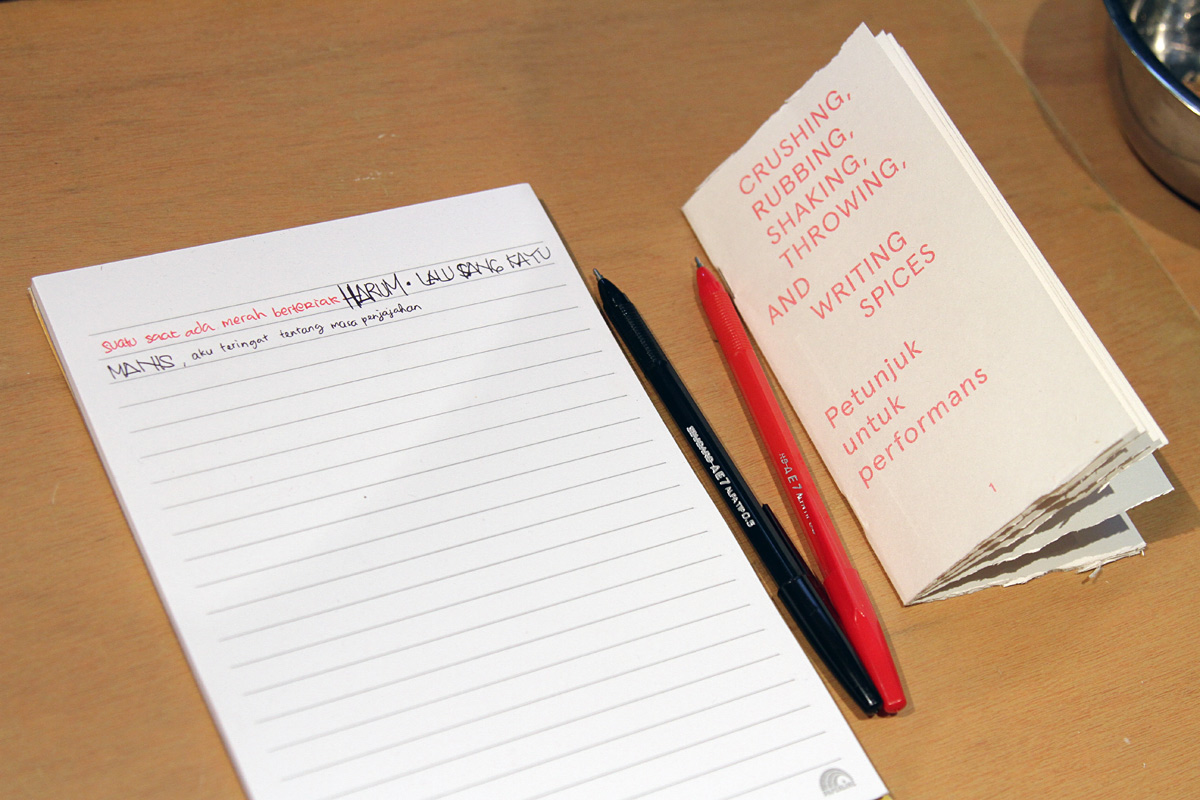 suatu saat ada merah berteriak HARUM. LALU SANG KAYU
MANIS, aku teringat tentang masa penjajahan
STANDARD-AE7 ALFATIP 0.5
AE7
CRUSHING,
RUBBING,
SHAKING,
THROWING,
AND WRITING
SPICES
Petunjuk
untuk
performans
1